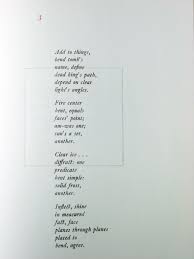 3
Add to things,
bend tomb's
name, define
dead king's path,
depend on clear
light's angles.
Fire center
bent, equals
faces' paint;
um-was one;
sun's a set,
another.
Clear ice . . .
diffract: one
predicate
bent simple:
solid frost,
another.
Inflect, shine
in measured
fact, face
planes through planes
placed to
bend, agree.